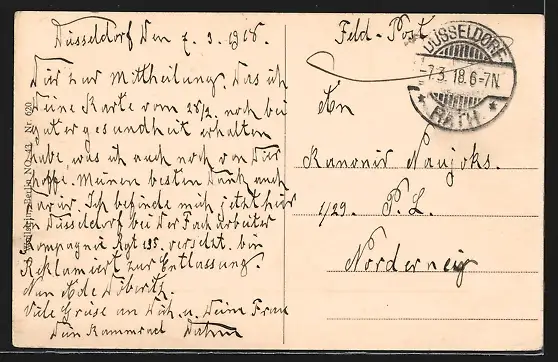 Düsseldorf Den 7. 3. 1918.
Dir zur Mittheilung. Das ich
Deine Karte vom 28/2. noch bei
guter gesundheit erhalten
habe, was ich auch noch von Dir
hoffe. Meinen besten Dank auch
davür. Ich befinde mich jetzt hier
in Düsseldorf bei der Facharbeiter
Kompagnie Rgt 135. versetzt. bin
Reklamirt zur Entlassung.
Nun Ade
Viele Grüse an Dich u. Deine Frau
Dein Kammrad Dahm
Feld-Post
DÜSSELDORF
-7.3.18.6-7N.
* RATH *
An
Kanonir Naujoks.
1/29. P. L.
Norderney
Nr. 620